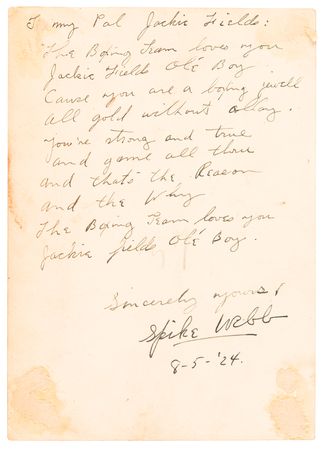 To my Pal Jackie Fields:
The Boxing Team loves you
Jackie Fields Ole' Boy
Cause you are a boxing jewell
all gold without alloy.
you're strong and true
and game all thru
and that's the Reason
and the Why
The Boxing Team loves you
Jackie fields Ole' Boy.
Sincerely yours,
Spike Webb
8-5-'24.